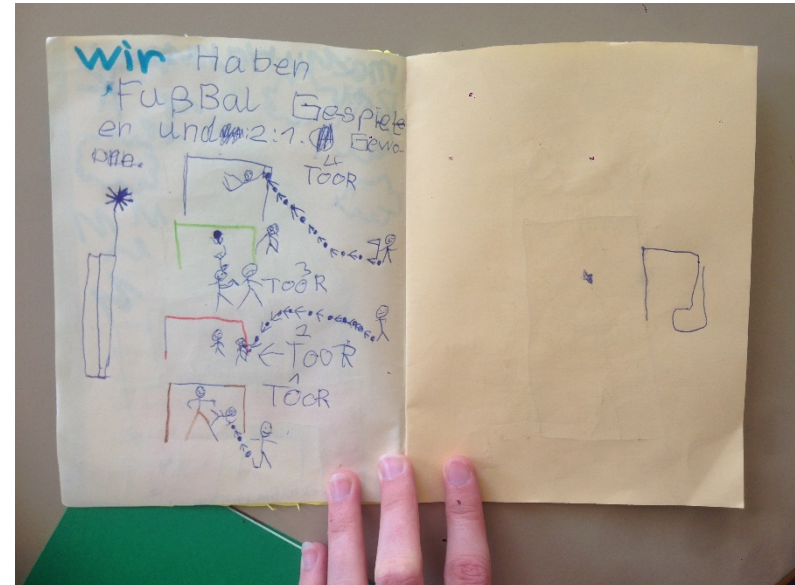 wir Haben
FußBal Gespiele
en und 2:1. Gewo-
nne.
4
TOOR
3
TOOR
2
← TOOR
1
TOOR